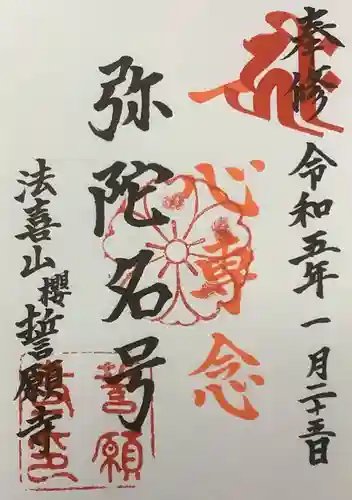 奉修 令和五年一月二十五日
一心専念
弥陀名号
法喜山 櫻 誓願寺
誓願
寺印